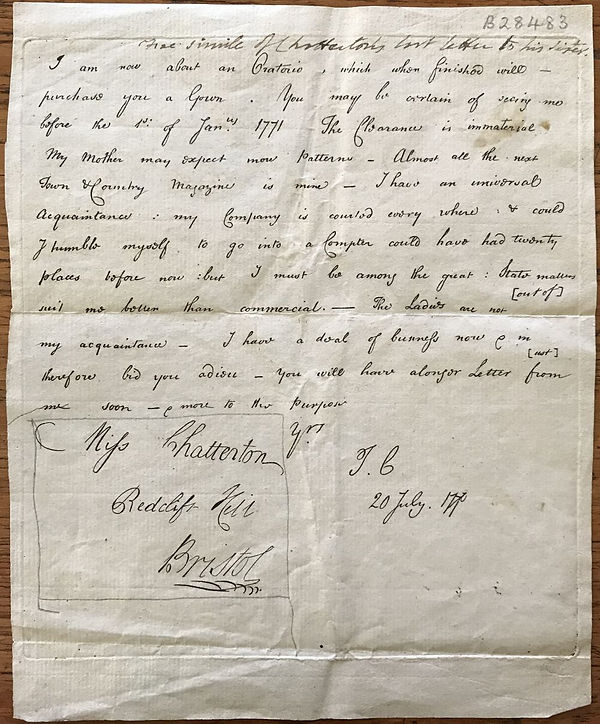 B28483
Fac simile of Chatterton's last letter to his sister.
I am now about an Oratorio, which when finished will –
purchase you a Gown. You may be certain of seeing me
before the 1st: of Jany. 1771 The Clearance is immaterial
My Mother may expect more patterns – Almost all the next
Town & Country Magazine is mine – I have an universal
Acquaintance: my Company is courted every where: & could
I humble myself to go into a Compter could have had twenty
places before now: but I must be among the great: State matters
suit me better than commercial. – The Ladies are not
[out of]
my acquaintance – I have a deal of business now &
[ust]
therefore bid you adieu – You will have a longer Letter from
me soon – & more to the Purpose
Yrs
T. C
20 July. 1770
Miss Chatterton
Redclift Hill
Bristol